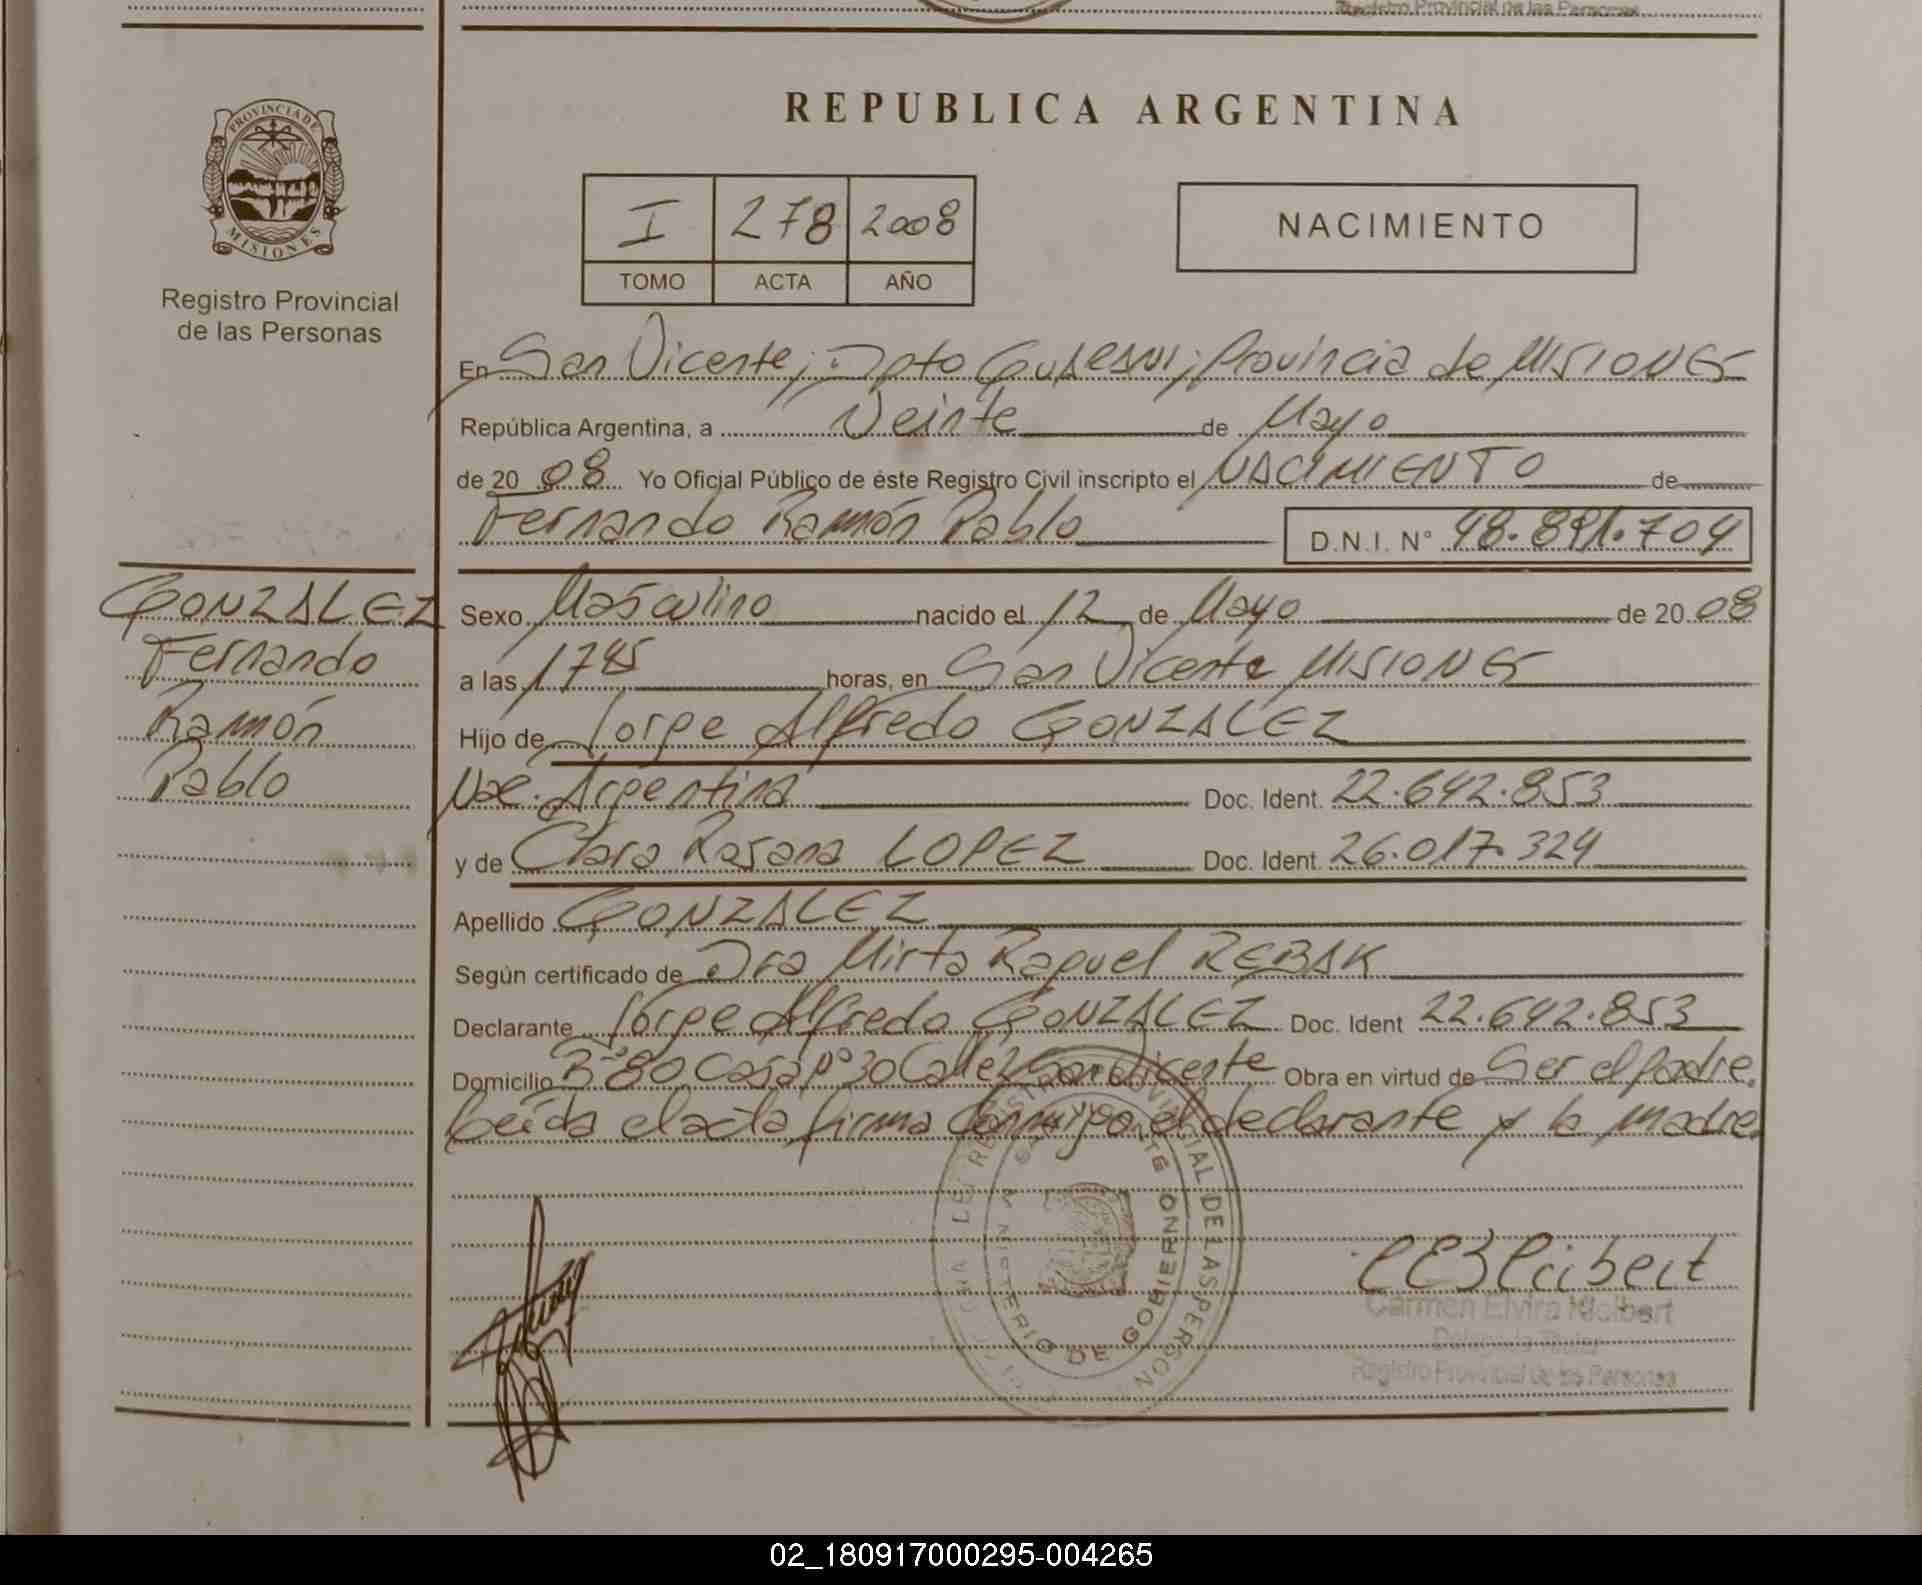 Registro Provincial de las Personas
PROVINCIA DE
MISIONES
Registro Provincial
de las Personas
REPUBLICA ARGENTINA
I 278 2008
TOMO ACTA AÑO
NACIMIENTO
En San Vicente, Dpto Guarani, Provincia de MISIONES
República Argentina, a Veinte de Mayo
de 20 08 Yo Oficial Público de éste Registro Civil inscripto el NACIMIENTO de
Fernando Ramón Pablo D.N.I. N° 48.891.704
GONZALEZ
Fernando
Ramón
Pablo
Sexo Masculino nacido el 12 de Mayo de 20 08
a las 1745 horas, en San Vicente MISIONES
Hijo de Jorge Alfredo GONZALEZ
Nac. Argentina Doc. Ident. 22.642.853
y de Clara Rosana LOPEZ Doc. Ident. 26.017.324
Apellido GONZALEZ
Según certificado de Dra Mirta Raquel REBAK
Declarante Jorge Alfredo GONZALEZ Doc. Ident 22.642.853
Domicilio B° 80 Casa N° 30 Calle 2 San Vicente Obra en virtud de Ser el padre.
Leída el acta firma conmigo el declarante y la madre.
MINISTERIO DE GOBIERNO
Carmen Elvira
Registro Provincial de las Personas
02_180917000295-004265